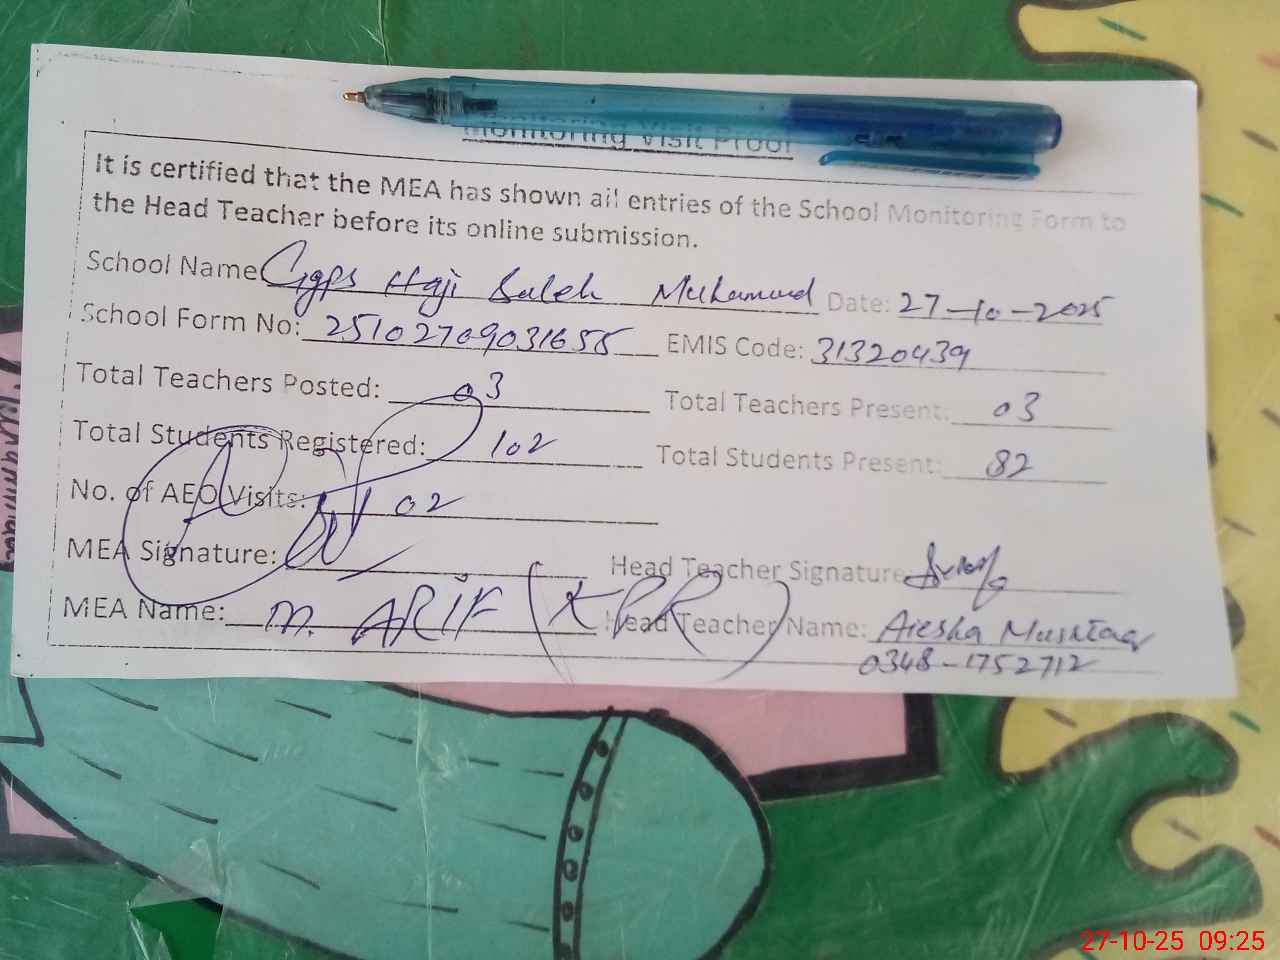 Monitoring Visit Proof
It is certified that the MEA has shown all entries of the School Monitoring Form to
the Head Teacher before its online submission.
School Name Ggps Haji Saleh Muhammad Date: 27-10-2025
School Form No: 25102709031655 EMIS Code: 31320439
Total Teachers Posted: 03 Total Teachers Present: 03
Total Students Registered: 102 Total Students Present: 82
No. of AEO Visits: 02
MEA Signature: Head Teacher Signature
MEA Name: M. ARIF (KPR) Head Teacher Name: Aiesha Mushtaq
0348-1752712
27-10-25 09:25